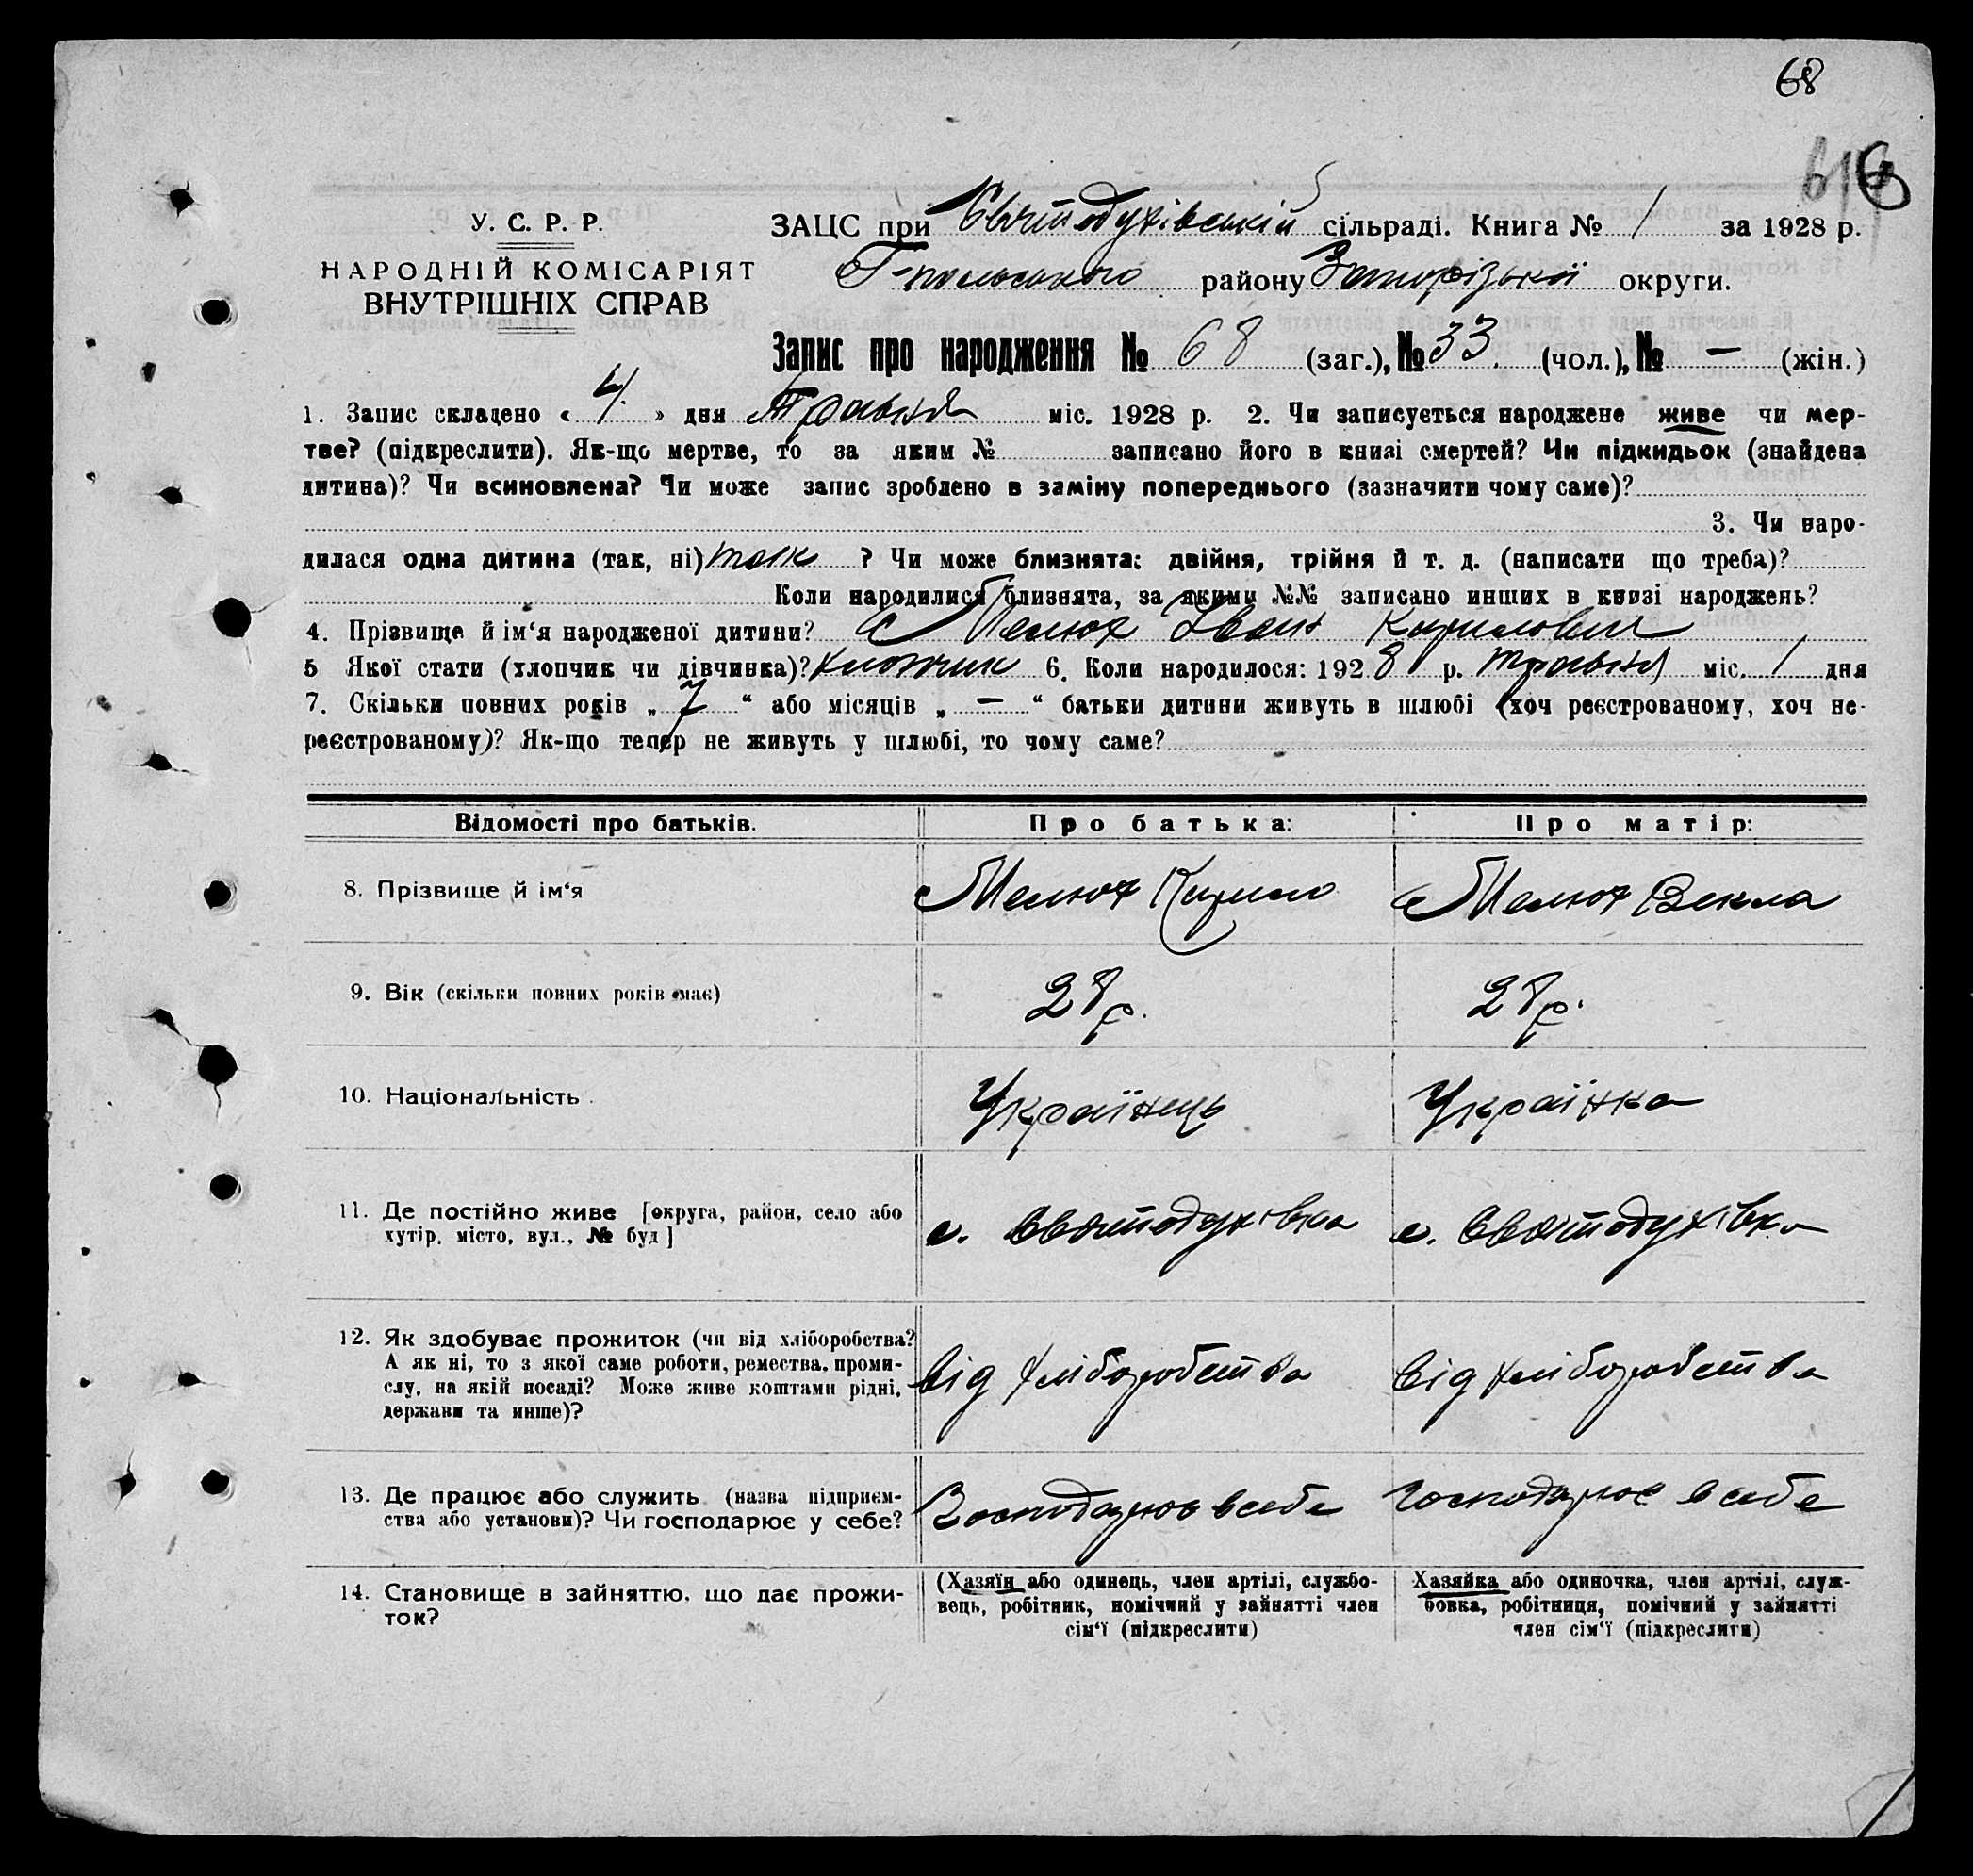 68
У. С. Р. Р.
НАРОДНІЙ КОМІСАРІЯТ
ВНУТРІШНІХ СПРАВ
ЗАЦС при Святодухівській сільраді. Книга № 1 за 1928 р.
району Запорізької округи.
Запис про народження № 68 (заг.), № 33. (чол.), № — (жін.)
1. Запис складено « 4. » дня Травня міс. 1928 р. 2. Чи записується народжене живе чи мер-
тве? (підкреслити). Як-що мертве, то за яким № записано його в книзі смертей? Чи підкидьок (знайдена
дитина)? Чи всиновлена? Чи може запис зроблено в заміну попереднього (зазначити чому саме)?
3. Чи наро-
дилася одна дитина (так, ні) так ? Чи може близнята: двійня, трійня й т. д. (написати що треба)?
Коли народилися близнята, за якими №№ записано инших в книзі народжень?
4. Прізвище й ім‘я народженої дитини? Мелюх Іван Кирилович
5 Якої стати (хлопчик чи дівчинка)? Хлопчик 6. Коли народилося: 1928 р. травня міс. 1 дня
7. Скільки повних років „ 7 “ або місяців „ — “ батьки дитини живуть в шлюбі (хоч реєстрованому, хоч не-
реєстрованому)? Як-що тепер не живуть у шлюбі, то чому саме?
Відомості про батьків. Про батька: Про матір:
8. Прізвище й ім‘я Мелюх Кирило Мелюх Векла
9. Вік (скільки повних років має) 28 р. 28 р.
10. Національність Українець Українка
11. Де постійно живе [округа, район, село або
хутір, місто, вул., № буд] с. Святодухівка с. Святодухівка
12. Як здобуває прожиток (чи від хліборобства?
А як ні, то з якої саме роботи, ремества, проми-
слу, на якій посаді? Може живе коштами рідні,
держави та инше)? від хліборобства від хліборобства
13. Де працює або служить (назва підприєм-
ства або установи)? Чи господарює у себе? Господарює в себе Господарює в себе
14. Становище в зайняттю, що дає прожи-
ток?
(Хазяїн або одинець, член артілі, службо-
вець, робітник, помічний у зайнятті член
сім‘ї (підкреслити)
Хазяйка або одиночка, член артілі, служ-
бовка, робітниця, помічний у зайнятті
член сім‘ї (підкреслити)